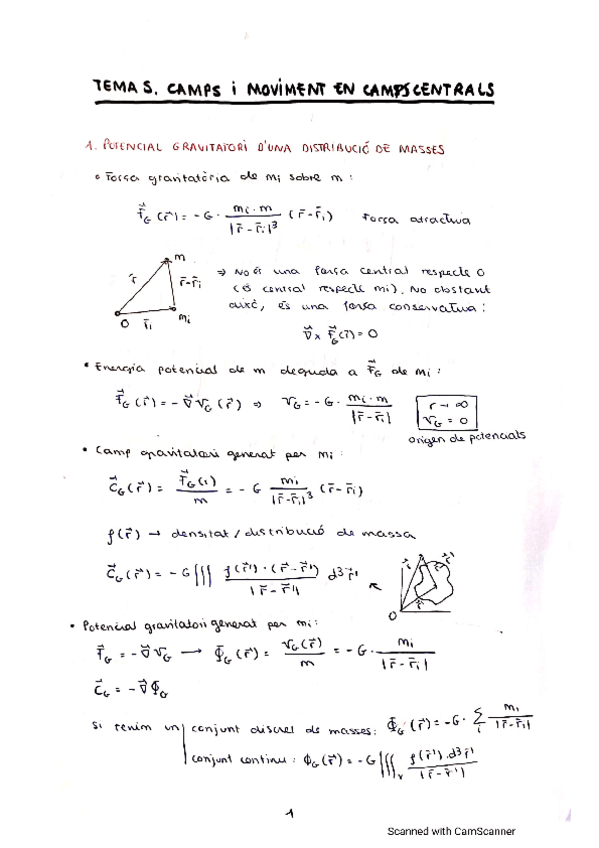 TEMA 5. CAMPS i MOVIMENT EN CAMPS CENTRALS
1. POTENCIAL GRAVITATORI D'UNA DISTRIBUCIÓ DE MASSES
• Força gravitatòria de mi sobre m:
F⃗G (r⃗) = - G · mi · m / |r̄ - r̄i|³ (r̄ - r̄i) Força atractiva
m
r̄ r̄-r̄i
O r̄i mi
⇒ No és una força central respecte O
(és central respecte mi). No obstant
això, és una força conservativa:
∇⃗ x F⃗G(r̄) = 0
• Energia potencial de m deguda a F⃗G de mi:
F⃗G (r⃗) = - ∇⃗ VG (r⃗) ⇒ VG = - G · mi · m / |r̄ - r̄i|
r → ∞
VG = 0
origen de potencials
• Camp gravitatori generat per mi:
C⃗G (r⃗) = F⃗G (r) / m = - G mi / |r̄ - r̄i|³ (r̄ - r̄i)
ρ(r⃗) → densitat / distribució de massa
C⃗G (r⃗) = - G ∭ ρ(r⃗') · (r⃗ - r⃗') / |r̄ - r̄'| d³r⃗'
O
• Potencial gravitatori generat per mi:
F⃗G = - ∇⃗ VG → ΦG (r⃗) = VG (r⃗) / m = - G · mi / |r̄ - r̄i|
C⃗G = - ∇⃗ ΦG
Si tenim un conjunt discret de masses: ΦG (r⃗) = - G · Σi mi / |r̄ - r̄i|
conjunt continu: ΦG (r⃗) = - G ∭v ρ(r⃗') · d³r⃗' / |r̄ - r̄'|
1
Scanned with CamScanner